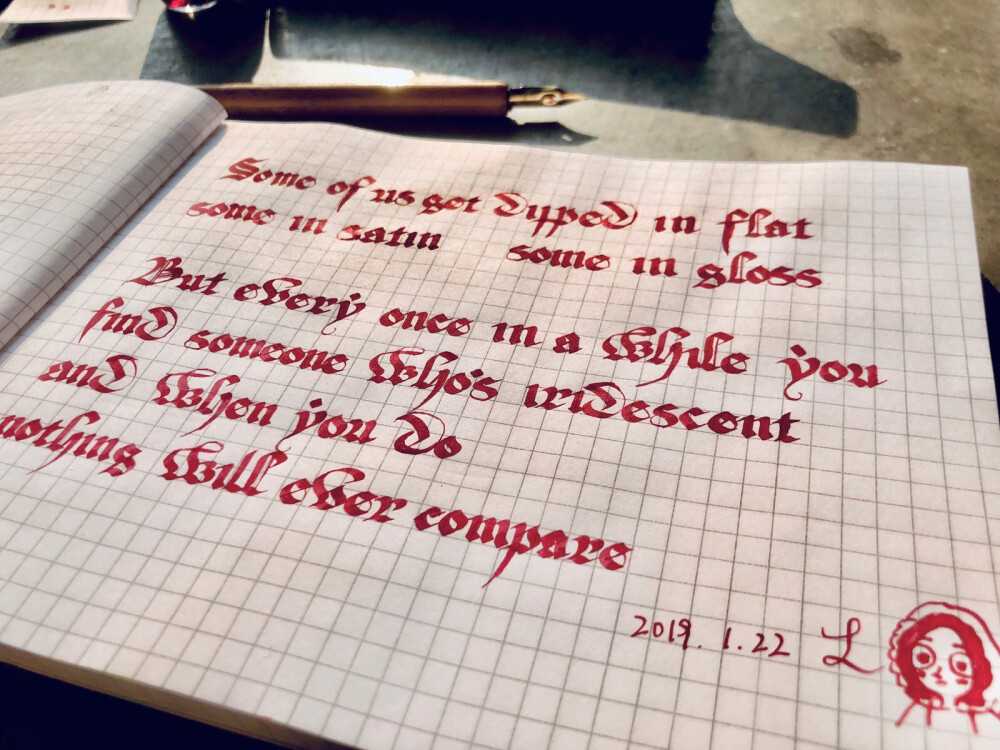 Some of us get dyped in flat
some in satin some in gloss
But every once in a while you
find someone who's iridescent
and when you do
nothing will ever compare
2019. 1. 22 L